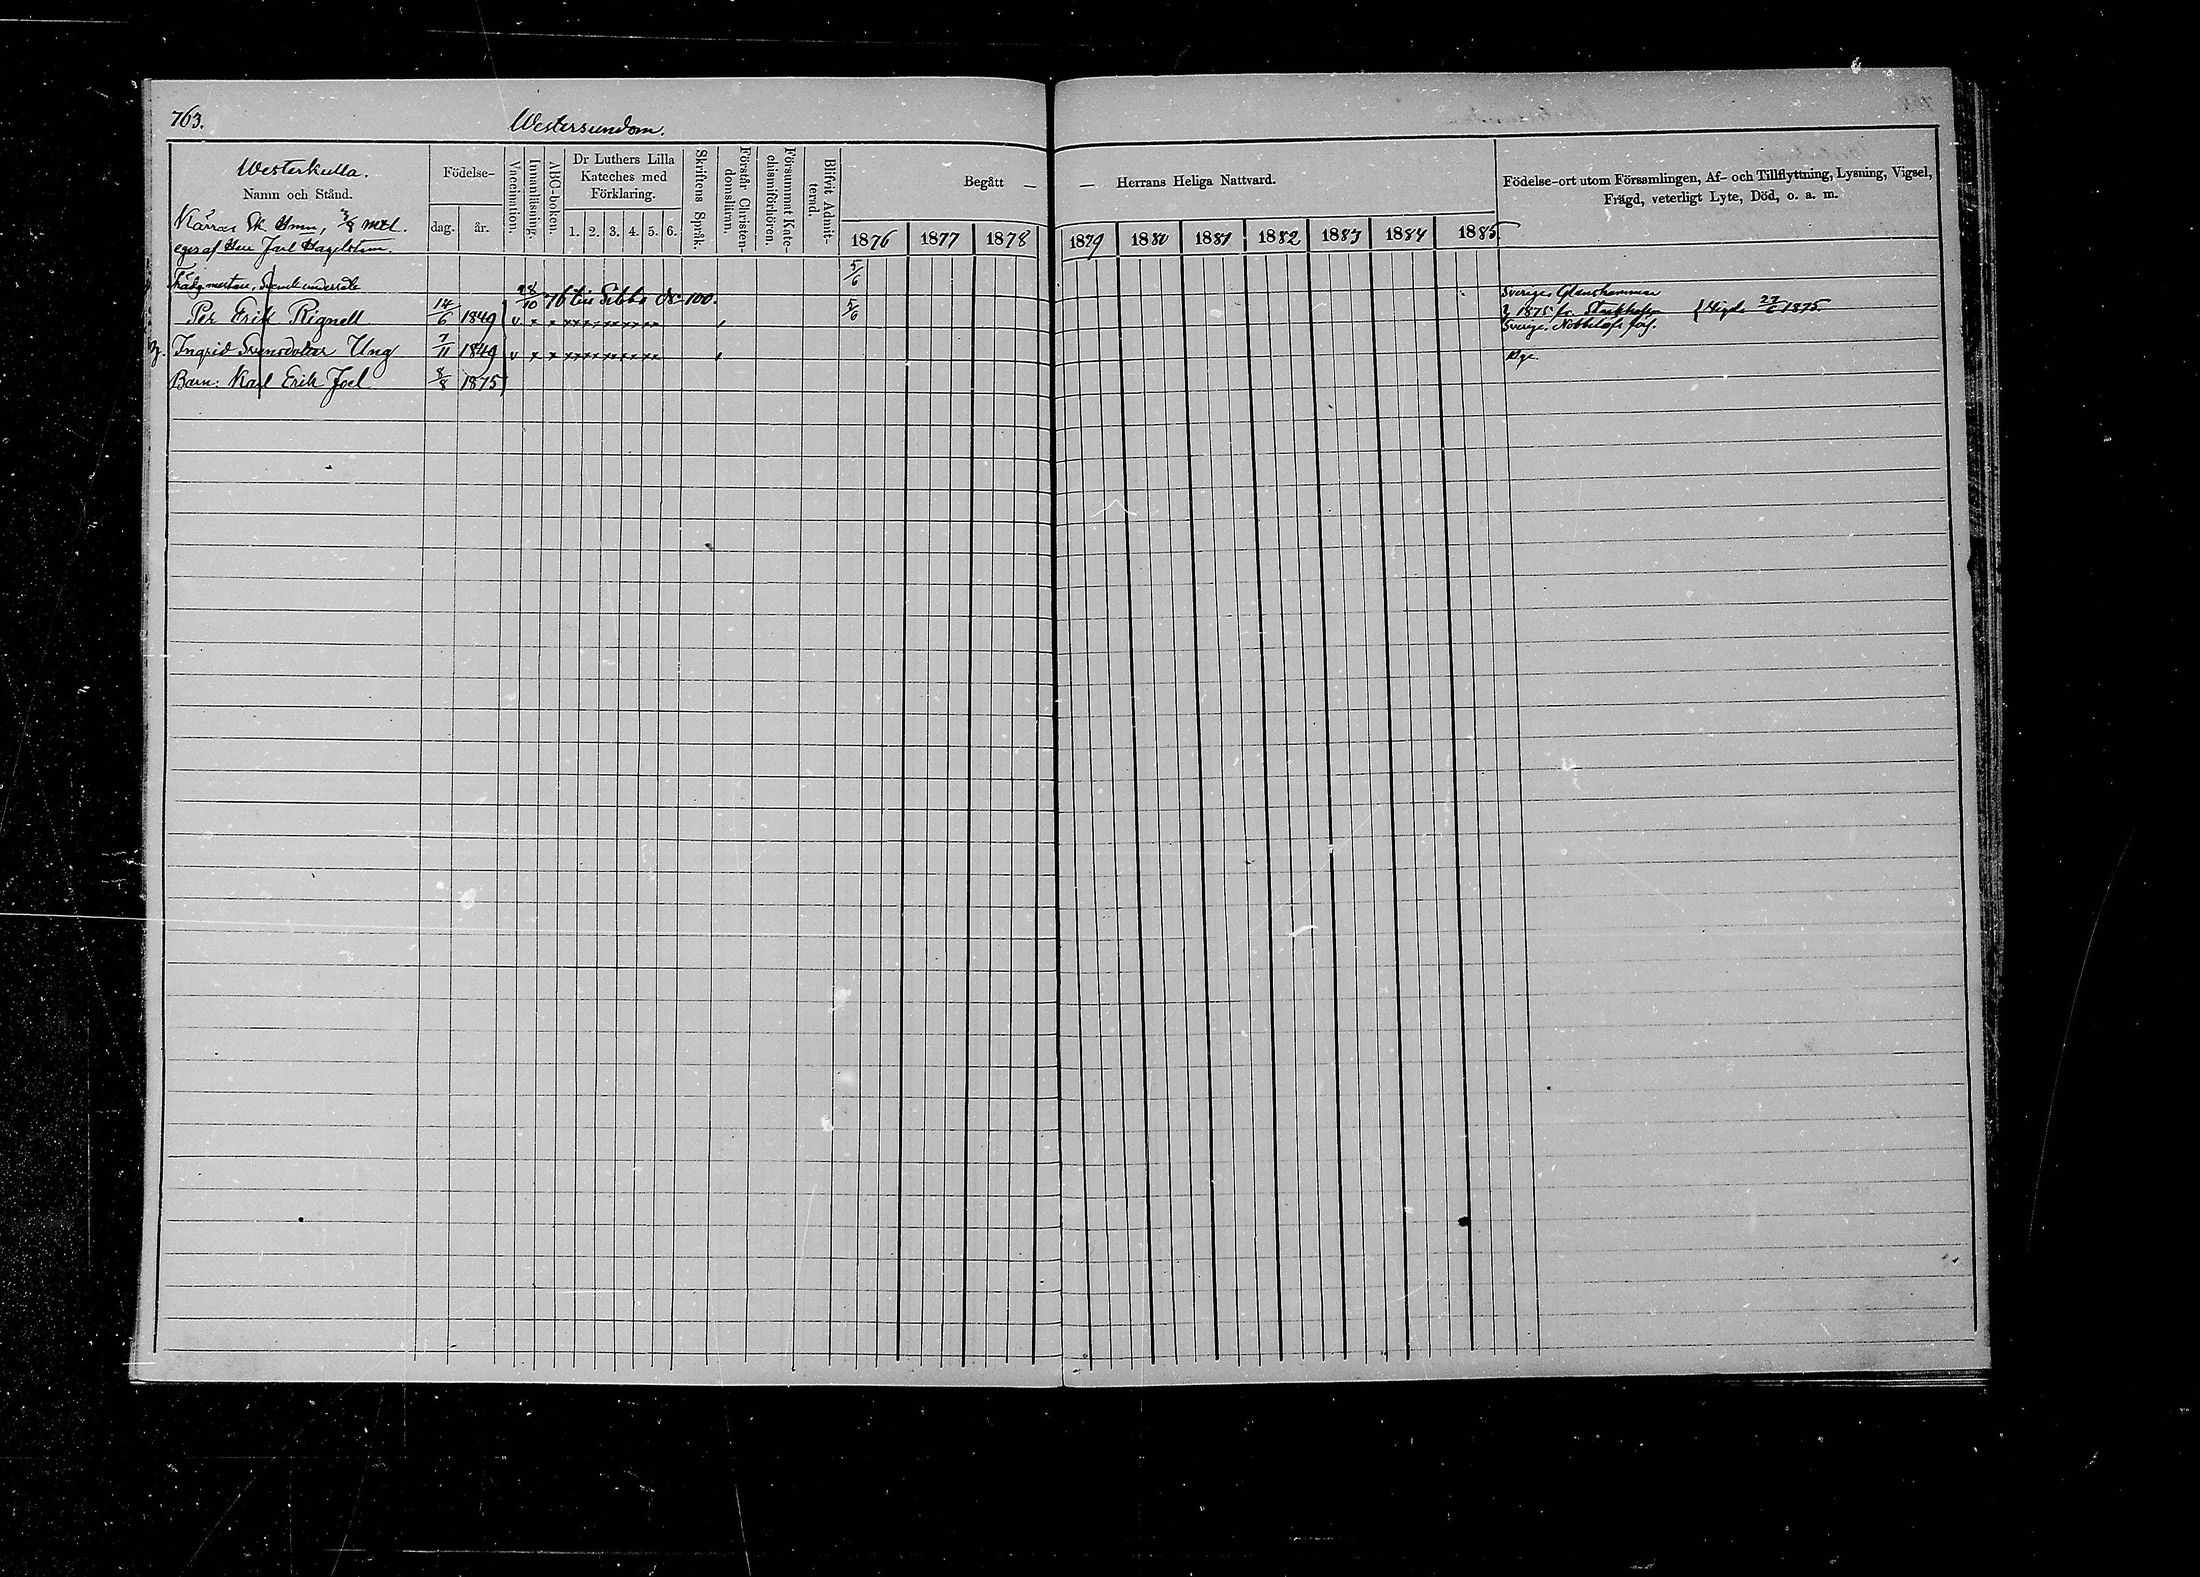 763.
Westersundom.
Westerkulla.
Namn och Stånd.
Kärras Sk Hmn, 3/8 mtl.
eges af Herr Jarl Hagelstam.
Födelse-
dag. år.
Vaccination.
Innanläsning.
ABC-boken.
Dr Luthers Lilla
Kateches med
Förklaring.
1. 2. 3. 4. 5. 6.
Skriftens Språk.
Förstår Christen-
domslitum.
Försummat Kate-
chismiförhören.
Blifvit Admit-
terad.
Begått —
1876 1877 1878
— Herrans Heliga Nattvard.
1879 1880 1881 1882 1883 1884 1885
Födelse-ort utom Församlingen, Af- och Tillflyttning, Lysning, Vigsel,
Frägd, veterligt Lyte, Död, o. a. m.
Trädg.mästare, Svensk undersåte 5/6
28/10 76 till Sibbo № 100.
Per Erik Rignell 14/6 1849 v x x x x x x x x x x 5/6
Sverige, Glanshammar
1875 fr. Stockholm } Vigde 27/6 1875.
Ingrid Svensdotter Ung 7/11 1849 v x x x x x x x x x x
Sverige,
Barn: Karl Erik Joel 8/8 1875